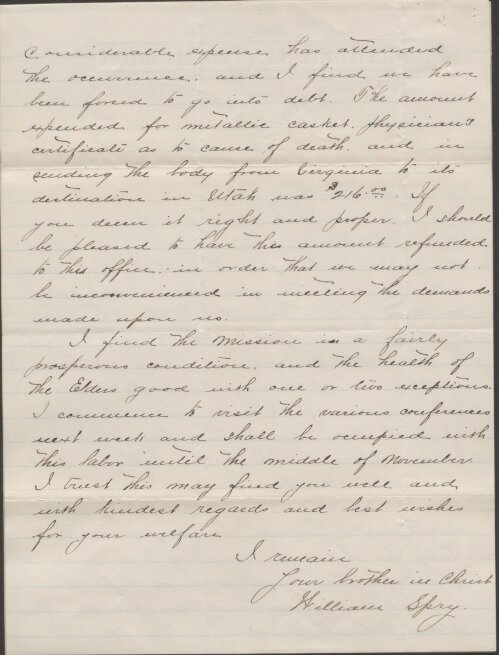 Considerable expense has attended
the occurrence. and I find we have
been forced to go into debt. The amount
expended for metallic casket. physician's
certificate as to cause of death. and in
sending the body from Virginia to its
destination in Utah was $216.00. If
you deem it right and proper. I should
be pleased to have this amount refunded
to this office. in order that we may not
be inconvenienced in meeting the demands
made upon us.
I find the Mission in a fairly
prosperous condition, and the health of
the Elders good with one or two exceptions.
I commence to visit the various conferences
next week and shall be occupied with
this labor until the middle of November.
I trust this may find you well and
with kindest regards and best wishes
for your welfare
I remain
Your brother in Christ
William Spry.